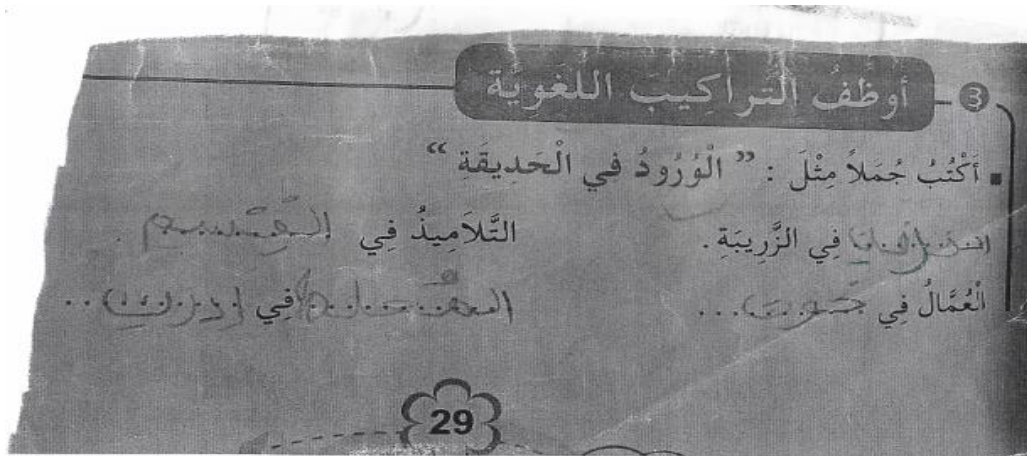 3 أُوَظِّفُ التَّرَاكِيبَ اللُّغَوِيَّةَ
▪ أَكْتُبُ جُمَلاً مِثْلَ : " الْوُرُودُ في الْحَدِيقَةِ "
فِي الزَّرِيبَةِ . التَّلاَمِيذُ فِي القسم .
الْعُمَّالُ فِي ..... فِي .....
29